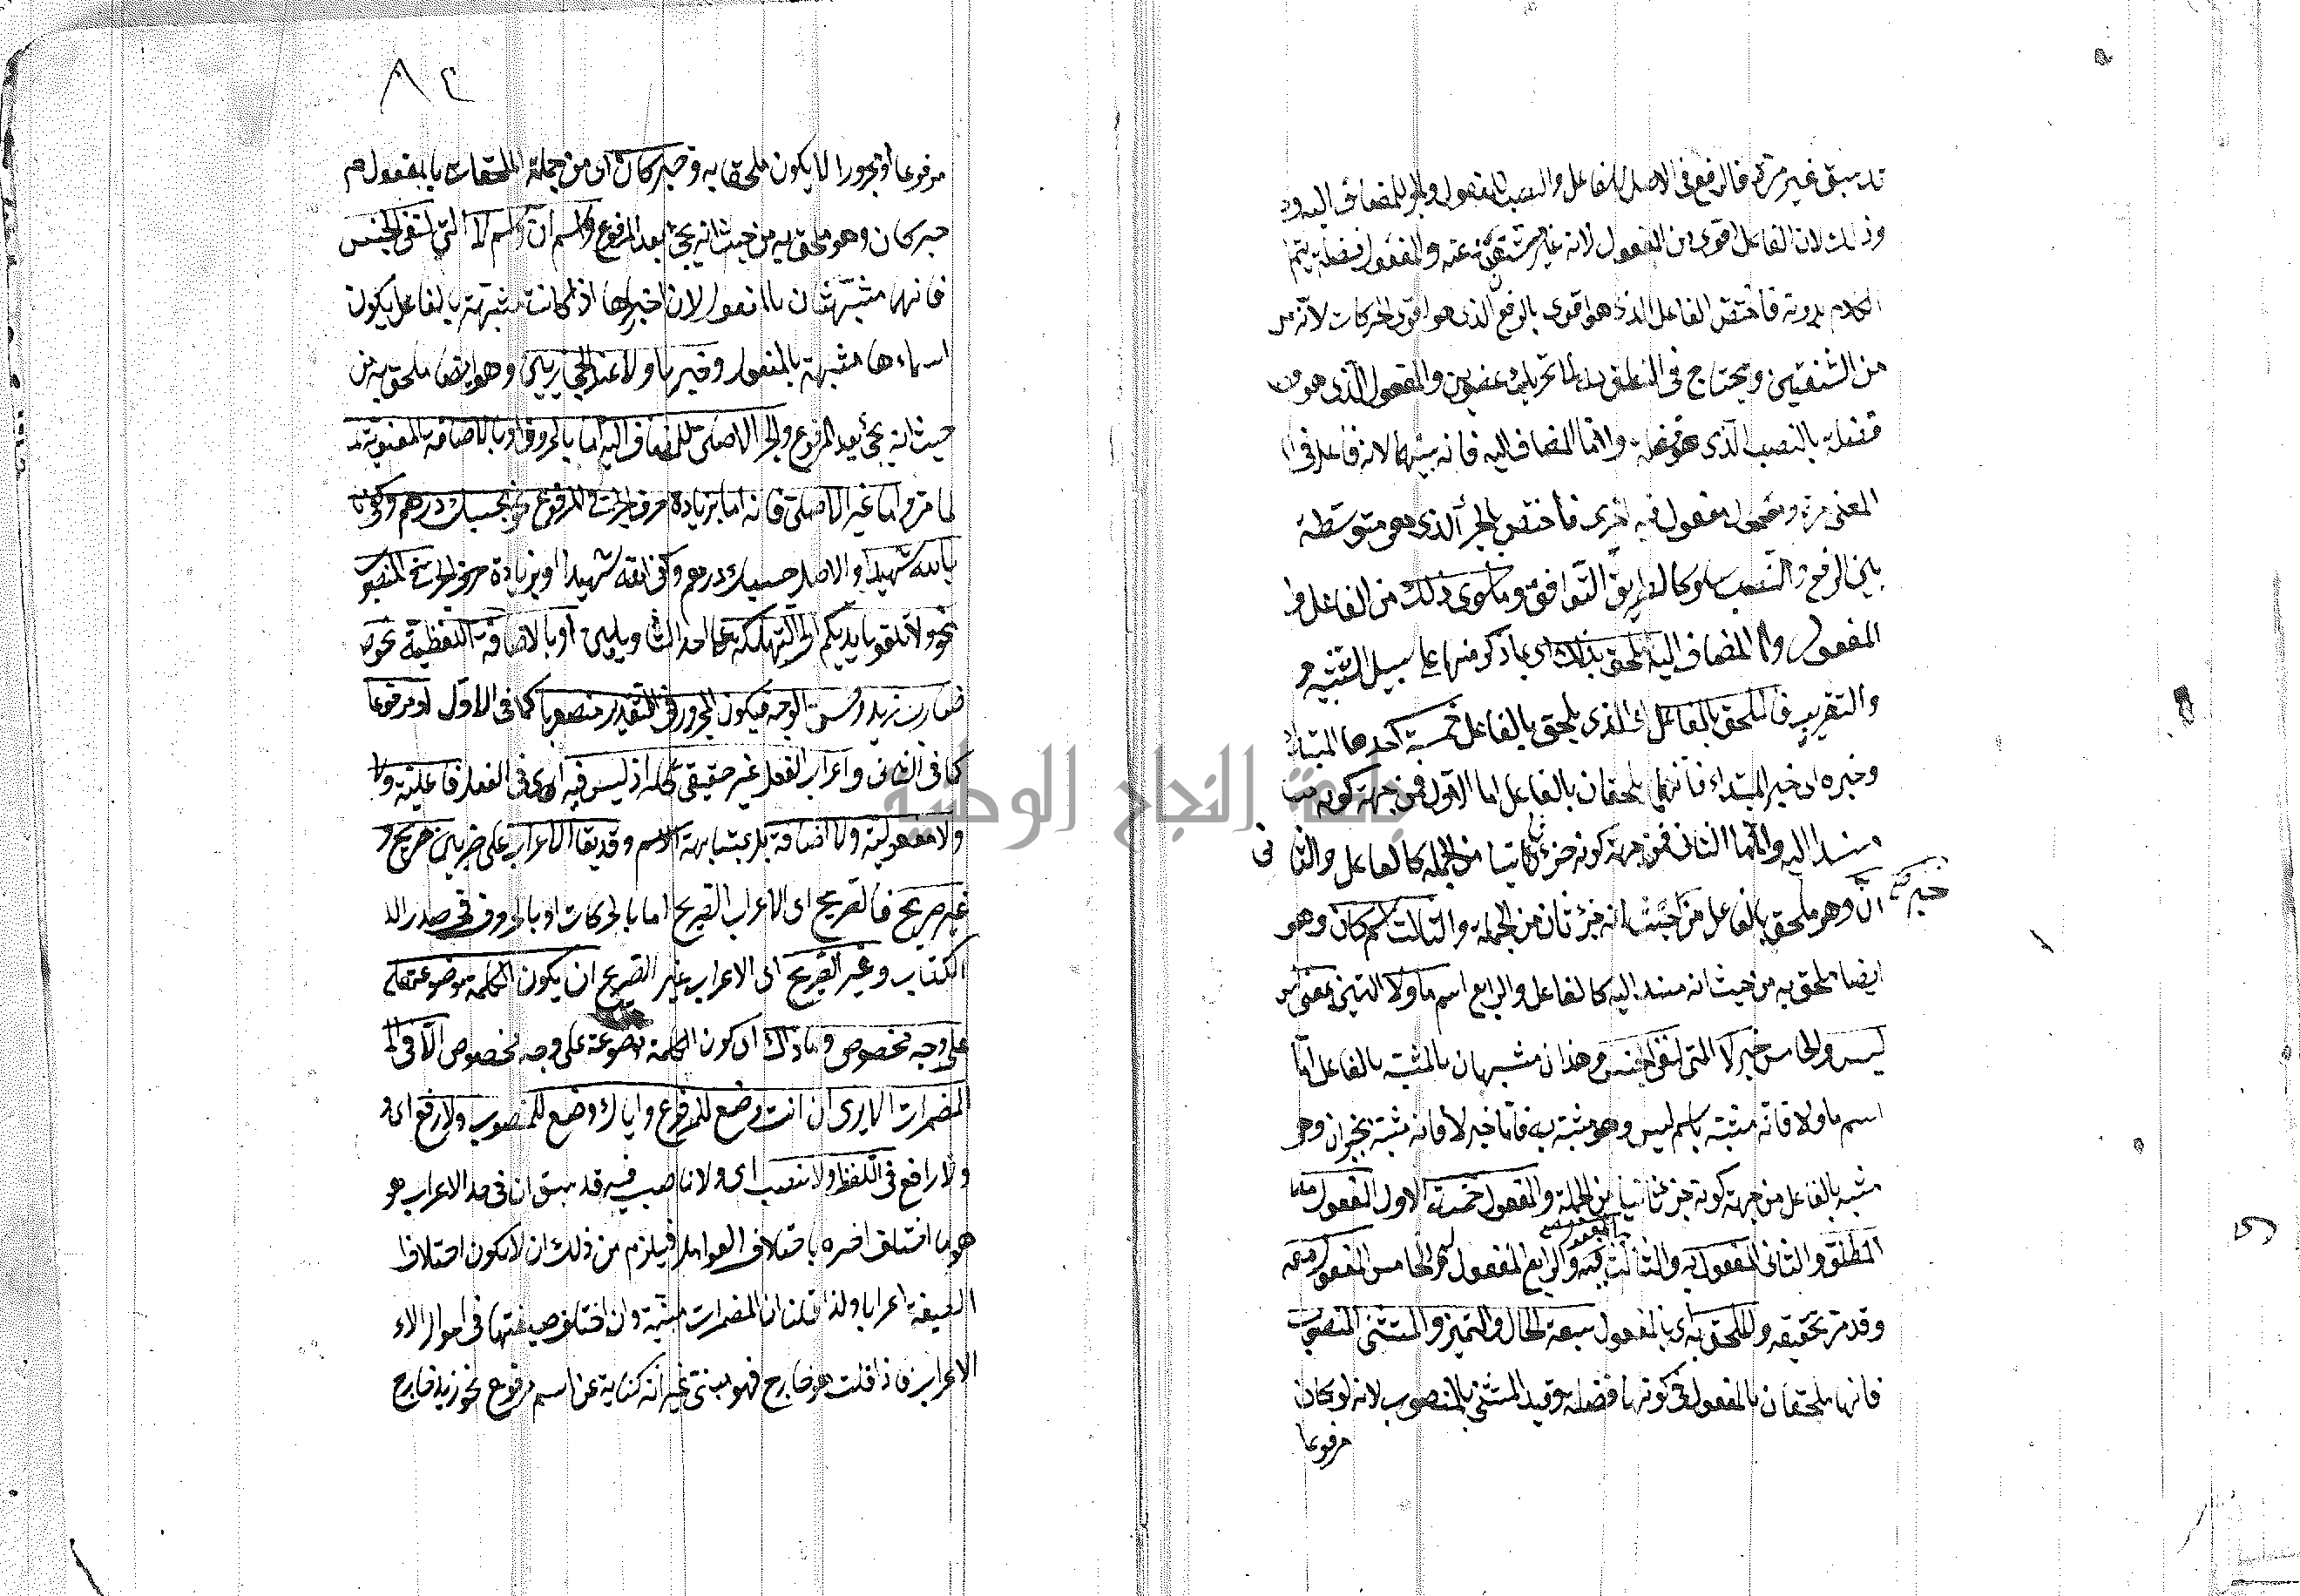 قد سبق غير مرة فالرفع فى الاصل للفاعل والنصب للمفعول والجر للمضاف اليه و
وذلك لان الفاعل اقوى من المفعول لانه غير مستغنى عنه والمفعول فضلة يتم
الكلام بدونه فاختص الفاعل الذى هو اقوى بالرفع الذى هو اقوى الحركات لانه من
من الشفتين ويحتاج فى النطق به الى تحريك عضوين والمفعول الذى هو
فضلة بالنصب الذى هو فضلة واما المضاف اليه فانه بينهما لانه فاعل فى ا
المعنى مرة ومفعول فيه اخرى فاختص بالجر الذى هو متوسطة
بين الرفع والنصب سلوكا لطريق التوافق وما سوى ذلك من الفاعل وا
المفعول والمضاف اليه ملحق بذلك اى بما ذكر منها على سبيل التشبيه و
والتقريب فالملحق بالفاعل اى الذى يلحق بالفاعل خمسة احدها المبتدا
وخبره اى خبر المبتداء فانهما يلحقان بالفاعل اما الاول فمن جهة كونه
مسند اليه واما الثانى فمن جهة كونه جزء ثانيا من الجملة كالفاعل والثا نى
خبر صح
ان وهو ملحق بالفاعل من حيث انه جزء ثان من الجملة والثالث اسم كان وهو
ايضا ملحق به من حيث انه مسند اليه كالفاعل والرابع اسم ما ولا التين بمعنى ليس
ليس والخامس خبر لا التى لنفى الجنس وهذان مشبهان بالمشبه بالفاعل اما
اسم ما ولا فانه مشبه باسم ليس وهو مشبه به فاما خبر لا فانه مشبه بخبر ان وهو
مشبه بالفاعل من جهة كونه جزء ثانيا من الجملة والمفعول خمسة الاول المفعول
المفعول
المطلق والثانى المفعول به والثالث فيه والرابع المفعول له والخامس المفعول معه
وقد مر تحقيقه والملحق به اى بالمفعول سبعة الحال والتميز والمستثنى المنصوب
فانها ملحقان بالمفعول فى كونها فضلة وقيد المستثنى بالمنصوب لانه لو كان
مرفوعا
٨٢
مرفوعا او مجرورا لا يكون ملحقا به وخبر كان اى من جملة الملحقات بالمفعول
خبر كان وهو ملحق به من حيث انه يجئ بعد المرفوع واسم ان واسم لا التى لنفى الجنس
فانهما مشبهتان بالمفعول لان اخبارها اذا كانت مشبهة بالفاعل يكون
اسماءها مشبهة بالمفعول وخبر ما ولا عند الحجازيين وهو ايضا ملحق به من
حيث انه يجئ بعد المرفوع والجر الاصلى للمضاف اليه اما بالحروف او بالاضافة المعنوية
لما مر واما غير الاصلى فانه اما بزيادة حرف الجر فى المرفوع نحو بحسبك درهم وكفى
بالله شهيدا والاصل حسبك درهم وكفى الله شهيدا او بزيادة حرف الجر فى المنصوب
نحو ولا تلقو بايديكم الى التهلكة على احد التاويلين او بالاضافة اللفظية نحو
ضارب زيد وحسن الوجه فيكون المجرور فى التقدير منصوبا كما فى الاول او مرفوعا
كما فى الثانى واعراب الفعل غير حقيقى كله اذ ليس فيه اى فى الفعل فاعلية ولا
ولا مفعولية ولا اضافة بل بمشابهة الاسم وقد يقا الاعراب على ضربين صريح و
غير صريح فالصريح اى الاعراب الصريح اما بالحركات او بالحروف فى صدر ال
الكتاب وغير الصريح اى الاعراب غير الصريح ان يكون الكلمة موضوعة
على وجه مخصوص وما ذاك اى كون الكلمة موضوعة على وجه مخصوص الا فى ا
المضمرات الا يرى ان انت وضع للمرفوع واياك وضع للمنصوب ولا رفع اى و
ولا رافع فى اللفظ ولا نصب اى ولا ناصب فيه قد سبق ان فى حد الاعراب هو
هو ما اختلف اخره باختلاف العوامل فيلزم من ذلك ان لا يكون اختلاف
الصيغة اعرابا ولذا قلنا ان المضمرات مبنية وان اختلف صيغتها فى احوال الاع
الاعراب فاذا قلت هو خارج فهو مبنى غير انه كناية عن اسم مرفوع نحو زيد خارج
جامعة النجاح الوطنية